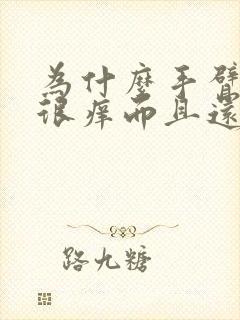 為什麼手臂
很癢而且還
路九糖